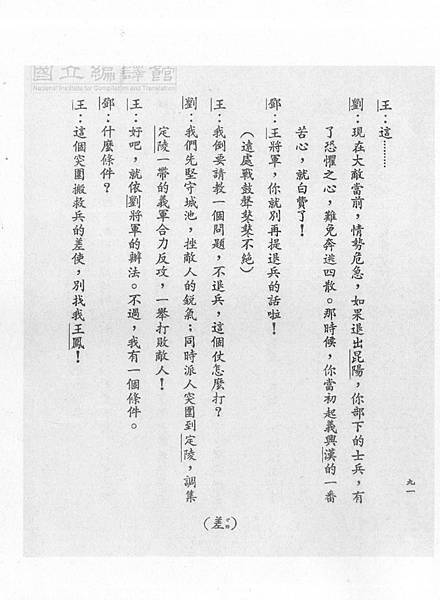 國立編譯館
National Institute for Compilation and Translation
王：這………
劉：現在大敵當前，情勢危急，如果退出昆陽，你部下的士兵，有
了恐懼之心，難免奔逃四散。那時候，你當初起義興漢的一番
苦心，就白費了！
鄧：王將軍，你就別再提退兵的話啦！
（遠處戰鼓聲鼕鼕不絕）
王：我倒要請教一個問題，不退兵，這個仗怎麼打？
劉：我們先堅守城池，挫敵人的銳氣；同時派人突圍到定陵，調集
定陵一帶的義軍合力反攻，一舉打敗敵人！
王：好吧，就依劉將軍的辦法。不過，我有一個條件。
鄧：什麼條件？
王：這個突圍搬救兵的差使，別找我王鳳！
（差）
九一